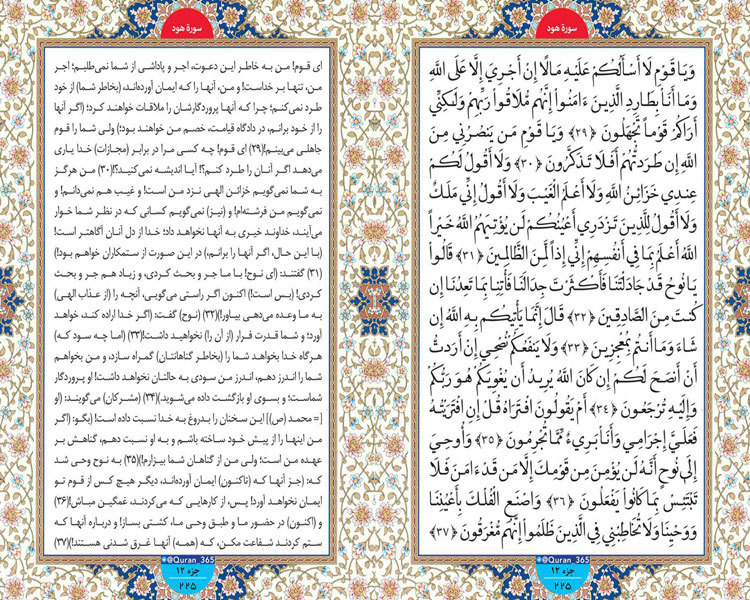 سورة هود
وَيَا قَوْمِ لَا أَسْأَلُكُمْ عَلَيْهِ مَالًا إِنْ أَجْرِيَ إِلَّا عَلَى اللَّهِ
وَمَا أَنَا بِطَارِدِ الَّذِينَ ءَامَنُوا إِنَّهُم مُّلَاقُوا رَبِّهِمْ وَلَٰكِنِّي
أَرَاكُمْ قَوْماً تَجْهَلُونَ ﴿٢٩﴾ وَيَا قَوْمِ مَن يَنصُرُنِي مِنَ
اللَّهِ إِن طَرَدتُّهُمْ أَفَلَا تَذَكَّرُونَ ﴿٣٠﴾ وَلَا أَقُولُ لَكُمْ
عِندِي خَزَائِنُ اللَّهِ وَلَا أَعْلَمُ الْغَيْبَ وَلَا أَقُولُ إِنِّي مَلَكٌ
وَلَا أَقُولُ لِلَّذِينَ تَزْدَرِي أَعْيُنُكُمْ لَن يُؤْتِيَهُمُ اللَّهُ خَيْراً
اللَّهُ أَعْلَمُ بِمَا فِي أَنفُسِهِمْ إِنِّي إِذاً لَّمِنَ الظَّالِمِينَ ﴿٣١﴾ قَالُوا
يَا نُوحُ قَدْ جَادَلْتَنَا فَأَكْثَرْتَ جِدَالَنَا فَأْتِنَا بِمَا تَعِدُنَا إِن
كُنتَ مِنَ الصَّادِقِينَ ﴿٣٢﴾ قَالَ إِنَّمَا يَأْتِيكُم بِهِ اللَّهُ إِن
شَاءَ وَمَا أَنتُم بِمُعْجِزِينَ ﴿٣٣﴾ وَلَا يَنفَعُكُمْ نُصْحِي إِنْ أَرَدتُّ
أَنْ أَنصَحَ لَكُمْ إِن كَانَ اللَّهُ يُرِيدُ أَن يُغْوِيَكُمْ هُوَ رَبُّكُمْ
وَإِلَيْهِ تُرْجَعُونَ ﴿٣٤﴾ أَمْ يَقُولُونَ افْتَرَاهُ قُلْ إِنِ افْتَرَيْتُهُ
فَعَلَيَّ إِجْرَامِي وَأَنَا بَرِيءٌ مِّمَّا تُجْرِمُونَ ﴿٣٥﴾ وَأُوحِيَ
إِلَى نُوحٍ أَنَّهُ لَن يُؤْمِنَ مِن قَوْمِكَ إِلَّا مَن قَدْ ءَامَنَ فَلَا
تَبْتَئِسْ بِمَا كَانُوا يَفْعَلُونَ ﴿٣٦﴾ وَاصْنَعِ الْفُلْكَ بِأَعْيُنِنَا
وَوَحْيِنَا وَلَا تُخَاطِبْنِي فِي الَّذِينَ ظَلَمُوا إِنَّهُم مُّغْرَقُونَ ﴿٣٧﴾
@Quran_365
جزء ١٢
٢٢٥
سورة هود
ای قوم! من به خاطر این دعوت، اجر و پاداشی از شما نمی‌طلبم؛ اجر
من، تنها بر خداست! و من، آنها را که ایمان آورده‌اند، (بخاطر شما) از خود
طرد نمی‌کنم؛ چرا که آنها پروردگارشان را ملاقات خواهند کرد؛ (اگر آنها
را از خود برانم، در دادگاه قیامت، خصم من خواهند بود؛) ولی شما را قوم
جاهلی می‌بینم!(۲۹) ای قوم! چه کسی مرا در برابر (مجازات) خدا یاری
می‌دهد اگر آنان را طرد کنم؟! آیا اندیشه نمی‌کنید؟!(۳۰) من هرگز
به شما نمی‌گویم خزائن الهی نزد من است! و غیب هم نمی‌دانم! و
نمی‌گویم من فرشته‌ام! و (نیز) نمی‌گویم کسانی که در نظر شما خوار
می‌آیند، خداوند خیری به آنها نخواهد داد؛ خدا از دل آنان آگاهتر است!
(با این حال، اگر آنها را برانم،) در این صورت از ستمکاران خواهم بود!)
(۳۱) گفتند: (ای نوح! با ما جر و بحث کردی، و زیاد هم جر و بحث
کردی! (بس است!) اکنون اگر راستی می‌گویی، آنچه را (از عذاب الهی)
به ما وعده می‌دهی بیاور!)(۳۲) (نوح) گفت: (اگر خدا اراده کند، خواهد
آورد؛ و شما قدرت فرار (از آن را) نخواهید داشت!(۳۳) (اما چه سود که)
هرگاه خدا بخواهد شما را (بخاطر گناهانتان) گمراه سازد، و من بخواهم
شما را اندرز دهم، اندرز من سودی به حالتان نخواهد داشت! او پروردگار
شماست؛ و بسوی او بازگشت داده می‌شوید.)(۳۴) (مشرکان) می‌گویند: (او
[= محمد (ص)] این سخنان را بدروغ به خدا نسبت داده است! (بگو: (اگر
من اینها را از پیش خود ساخته باشم و به او نسبت دهم، گناهش بر
عهده من است؛ ولی من از گناهان شما بیزارم!)(۳۵) به نوح وحی شد
که: (جز آنها که (تاکنون) ایمان آورده‌اند، دیگر هیچ کس از قوم تو
ایمان نخواهد آورد! پس، از کارهایی که می‌کردند، غمگین مباش!(۳۶)
و (اکنون) در حضور ما و طبق وحی ما، کشتی بساز! و درباره آنها که
ستم کردند شفاعت مکن، که (همه) آنها غرق شدنی هستند!)(۳۷)
@Quran_365
جزء ١٢
٢٢٥